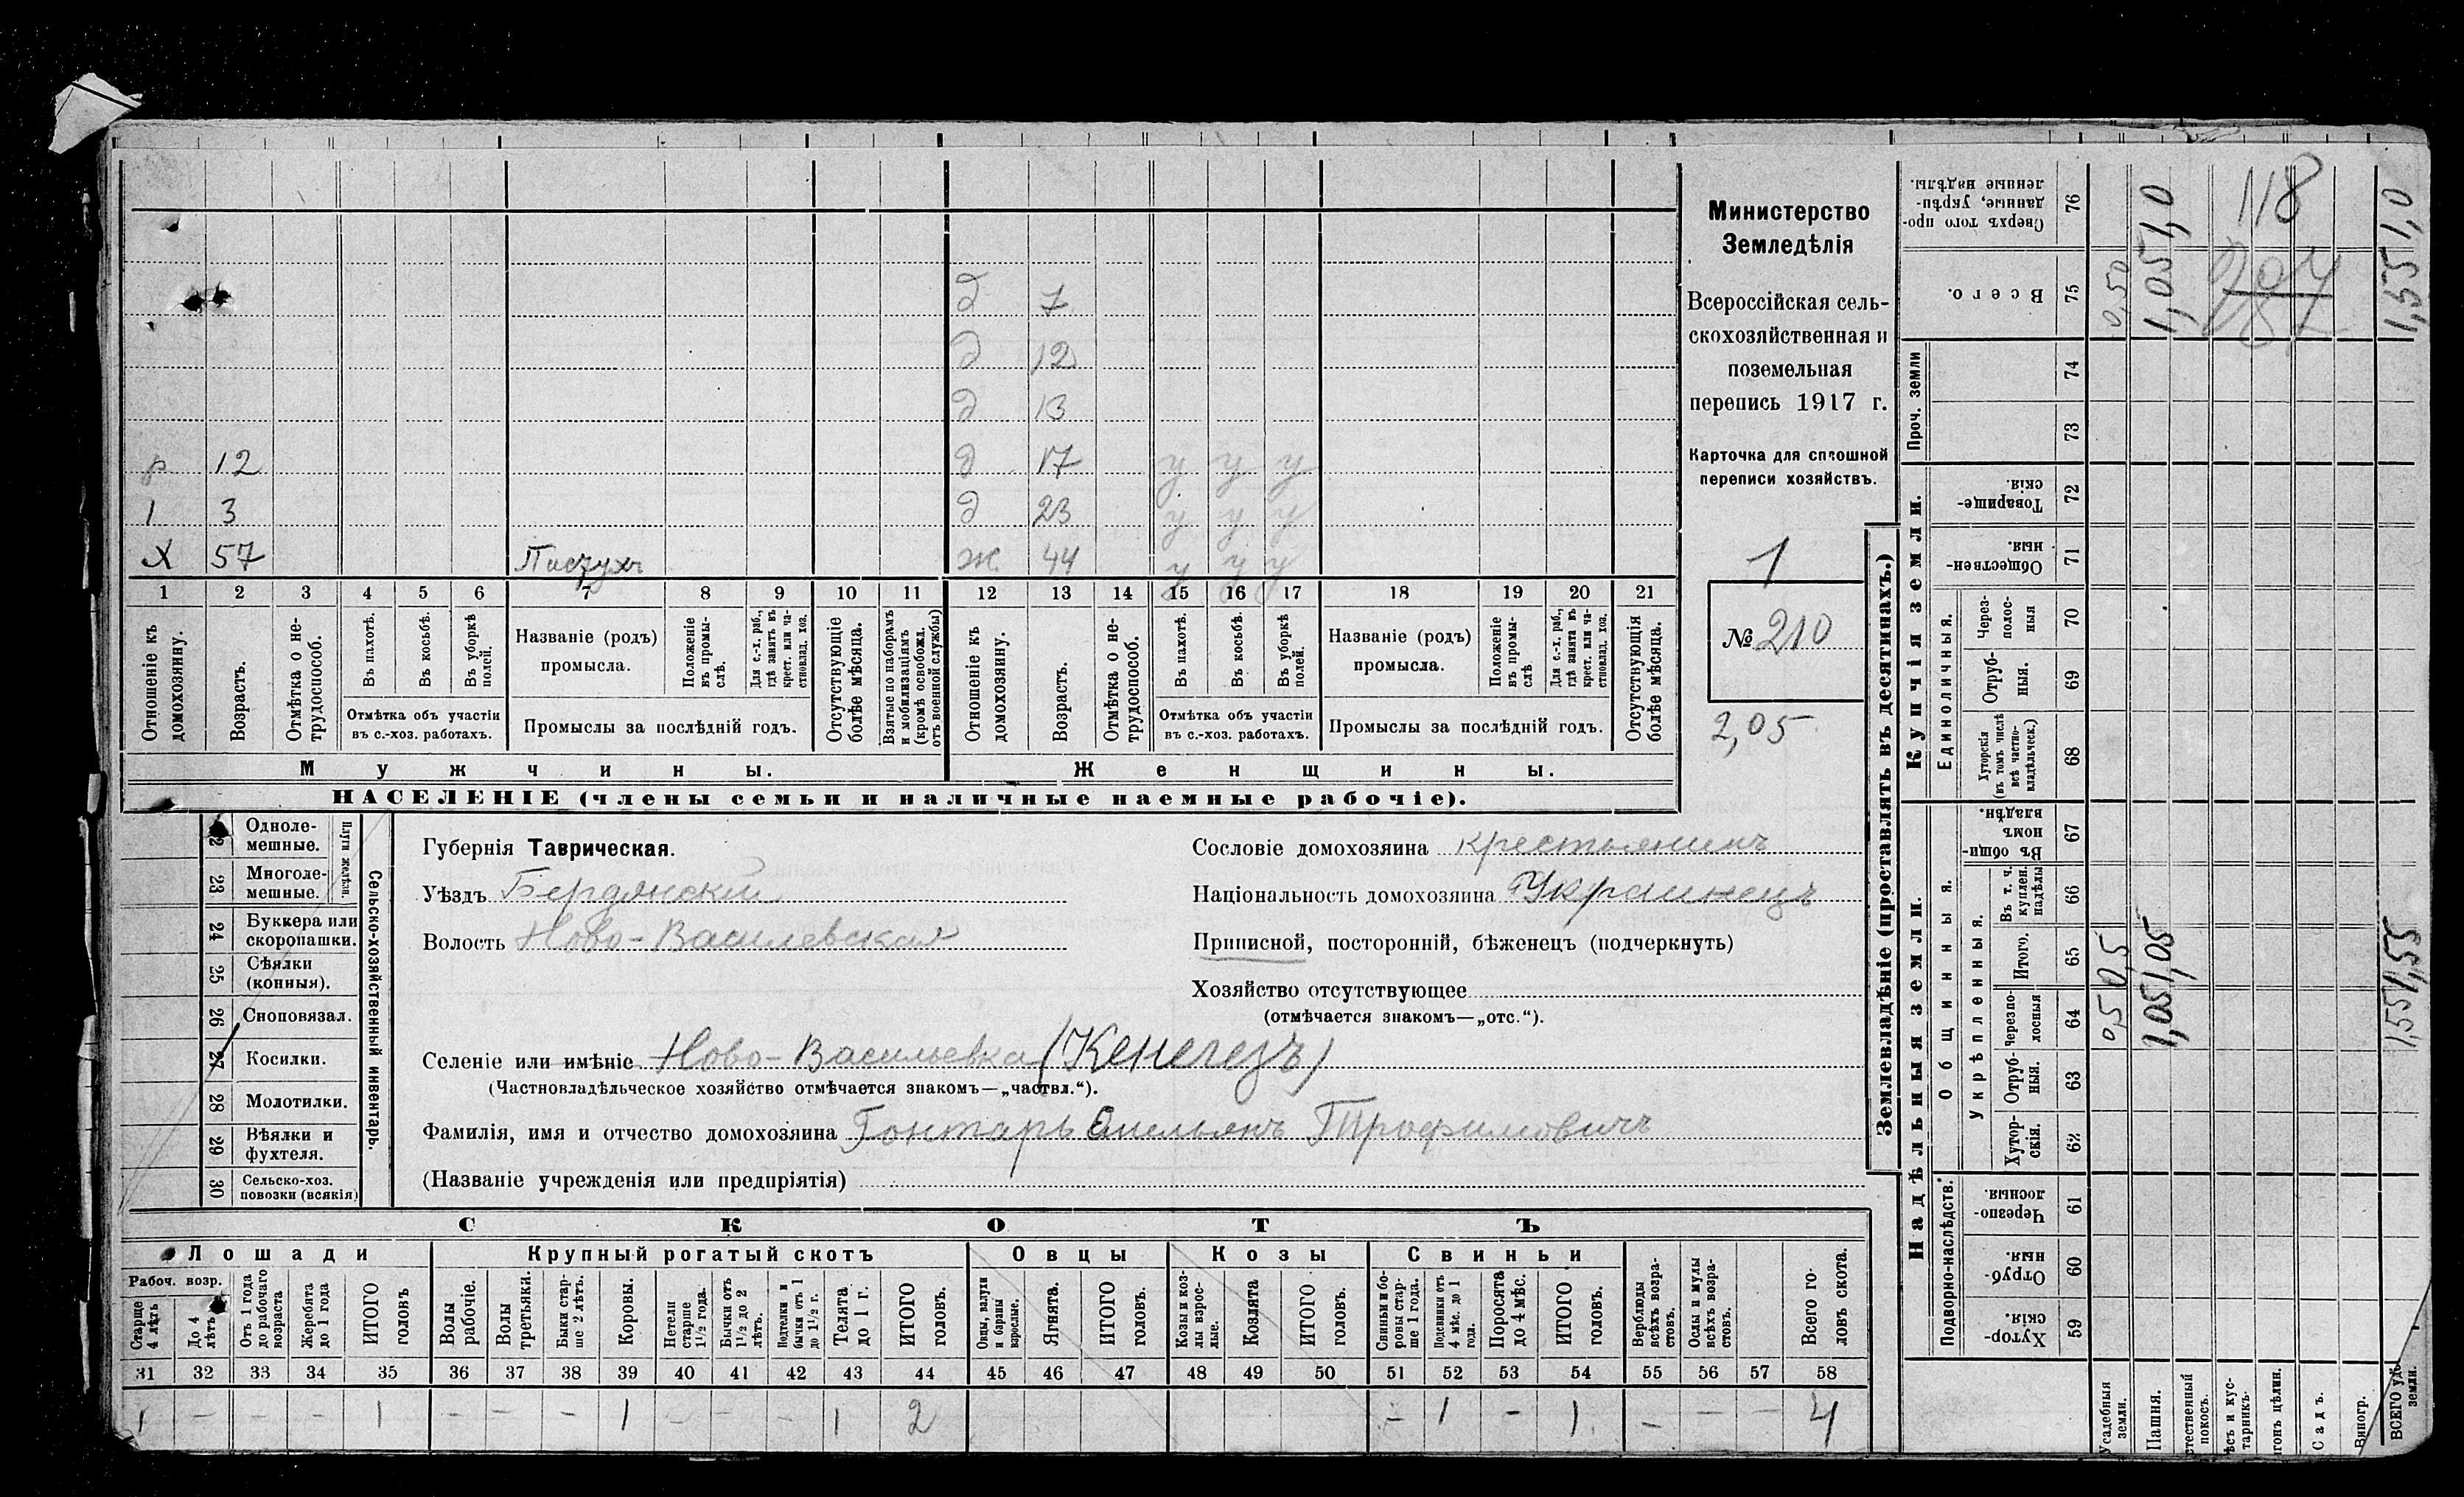 д 7
д 12
д 13
р 12 д 17 у у у
1 3 д 23 у у у
Х 57 Пастухъ ж 44 у у у
1 2 3 4 5 6 7 8 9 10 11 12 13 14 15 16 17 18 19 20 21
Отношеніе къ домохозяину.
Возрастъ.
Отмѣтка о не-трудоспособ.
Въ пахотѣ.
Въ косьбѣ.
Въ уборкѣ полей.
Отмѣтка объ участіи въ с.-хоз. работахъ.
Названіе (родъ) промысла.
Положеніе въ промы-слѣ.
Для с.-х. раб., гдѣ занятъ въ крест. или ча-стновлад. хоз.
Промыслы за послѣдній годъ.
Отсутствующіе болѣе мѣсяца.
Взятые по наборамъ и мобилизаціямъ (кромѣ освобожд. отъ военной службы)
Отношеніе къ домохозяину.
Возрастъ.
Отмѣтка о не-трудоспособ.
Въ пахотѣ.
Въ косьбѣ.
Въ уборкѣ полей.
Отмѣтка объ участіи въ с.-хоз. работахъ.
Названіе (родъ) промысла.
Положеніе въ промы-слѣ.
Для с.-х. раб., гдѣ занята въ крест. или ча-стновлад. хоз.
Промыслы за послѣдній годъ.
Отсутствующія болѣе мѣсяца.
Мужчины.
Женщины.
НАСЕЛЕНІЕ (члены семьи и наличные наемные рабочіе).
Министерство
Земледѣлія
Всероссійская сель-
скохозяйственная и
поземельная
перепись 1917 г.
Карточка для сплошной
переписи хозяйствъ.
1
№ 210
2,05
Сельско-хозяйственный инвентарь.
Плуги желѣзн.
Одноле-мешные.
23 Многоле-мешные.
24 Буккера или скоропашки.
25 Сѣялки (конныя).
26 Сноповязал.
27 Косилки.
28 Молотилки.
29 Вѣялки и фухтеля.
30 Сельско-хоз. повозки (всякія)
Губернія Таврическая.
Уѣздъ Бердянскій
Волость Ново-Василевская
Сословіе домохозяина крестьянинъ
Національность домохозяина Украинецъ
Приписной, посторонній, бѣженецъ (подчеркнуть)
Хозяйство отсутствующее
(отмѣчается знакомъ—„отс.“).
Селеніе или имѣніе Ново-Васильевка (Кенегезъ)
(Частновладѣльческое хозяйство отмѣчается знакомъ—„частвл.“).
Фамилія, имя и отчество домохозяина Гонтарь Емельянъ Трофимовичъ
(Названіе учрежденія или предпріятія)
СКОТЪ
Лошади Крупный рогатый скотъ Овцы Козы Свиньи
Рабоч. возр.
Старше 4 лѣтъ
До 4 лѣтъ
Отъ 1 года до рабочаго возраста
Жеребята до 1 года
ИТОГО головъ
Волы рабочіе.
Волы третьяки.
Быки стар-ше 2 лѣтъ.
Коровы.
Нетели старше 1 1/2 года.
Бычки отъ 1 1/2 до 2 лѣтъ.
Подтелки и бычки отъ 1 до 1 1/2 г.
Телята до 1 г.
ИТОГО головъ.
Овцы, валухи и бараны взрослые.
Ягнята.
ИТОГО головъ.
Козы и коз-лы взрос-лые.
Козлята
ИТОГО головъ.
Свиньи и бо-ровы стар-ше 1 года.
Подсвинки отъ 4 мѣс. до 1 года.
Поросята до 4 мѣс.
ИТОГО головъ.
Верблюды всѣхъ возра-стовъ.
Ослы и мулы всѣхъ возра-стовъ.
Всего го-ловъ скота.
31 32 33 34 35 36 37 38 39 40 41 42 43 44 45 46 47 48 49 50 51 52 53 54 55 56 57 58
1 – – – 1 – – – 1 – – – 1 2 – 1 – 1 – – – 4
Землевладѣніе (проставлять въ десятинахъ.)
Надѣльныя земли.
Купчія земли.
Проч. земли
Подворно-наслѣдств.
Общинныя.
Укрѣпленныя.
Единоличныя.
Хутор-скія. 59
Отруб-ныя. 60
Черезпо-лосныя. 61
Хутор-скія. 62
Отруб-ныя. 63
Черезпо-лосныя 64
Итого. 65
Въ т. ч. куплен. надѣлы 66
Въ общи-номъ владѣн. 67
Хуторскія (въ томъ числѣ всѣ частно-владѣльческ.) 68
Отруб-ныя. 69
Через-полос-ныя 70
Обществен-ныя. 71
Товарище-скія. 72
73
74
Всего. 75
Сверхъ того про-данные, укрѣп-ленные надѣлы. 76
Усадебныя земли. 0,5 0,5 0,50
Пашня. 1,05 1,05 1,05 1,0
стественный покосъ.
ѣсъ и кус-тарникъ.
гонъ цѣлин.
Садъ.
Виногр.
ВСЕГО уд. земли. 1,55 1,55 1,55 1,0
118